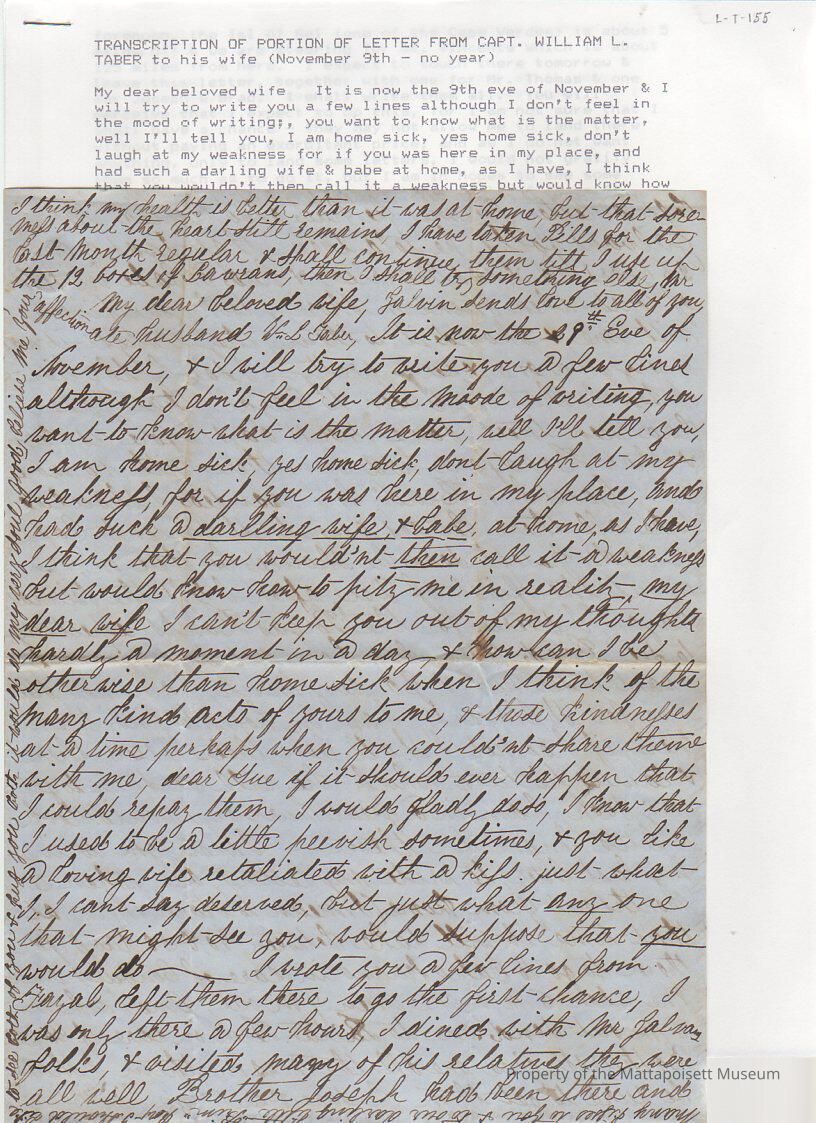 L-T-155
TRANSCRIPTION OF PORTION OF LETTER FROM CAPT. WILLIAM L.
TABER to his wife (November 9th - no year)
My dear beloved wife   It is now the 9th eve of November & I
will try to write you a few lines although I don't feel in
the mood of writing;, you want to know what is the matter,
well I'll tell you, I am home sick, yes home sick, don't
laugh at my weakness for if you was here in my place, and
had such a darling wife & babe at home, as I have, I think
that you wouldn't then call it a weakness but would know how
I think my health is better than it was at home, but that sore-
ness about the heart still remains, I have taken Pills for the
last Month regular & shall continue them till I use up
the 12 boxes of then I shall try something else, Mr
My dear beloved wife, sends love to all of you
affectionate husband Wm L Taber, It is now the 9th Eve of
November, & I will try to write you a few lines
although I don't feel in the moode of writing, you
want to know what is the matter, well I'll tell you,
I am home sick, yes home sick, dont laugh at my
weakness, for if you was here in my place, and
had such a darlling wife & babe, at home, as I have,
I think that you would'nt then call it a weakness
but would know how to pity me in reality, my
dear wife I can't keep you out of my thoughts
hardly a moment in a day & how can I be
otherwise than home sick when I think of the
many kind acts of yours to me, & those kindnesses
at a time perhaps when you could'nt share theme
with me, dear Sue if it should ever happen that
I could repay them, I would gladly doso, I know that
I used to be a little peevish sometimes, & you like
a loving wife retaliated with a kiss. just what
I, I cant say deserved, but just what any one
that might see you, would suppose that you
would do — I wrote you a few lines from
Fayal, left them there to go the first chance, I
was only there a few hours, I dined with Mr
folks, & visited many of his relatives they were
all well Brother Joseph had been there and
to see both of you & hug you both it would do my very soul good, believe me your
Property of the Mattapoisett Museum